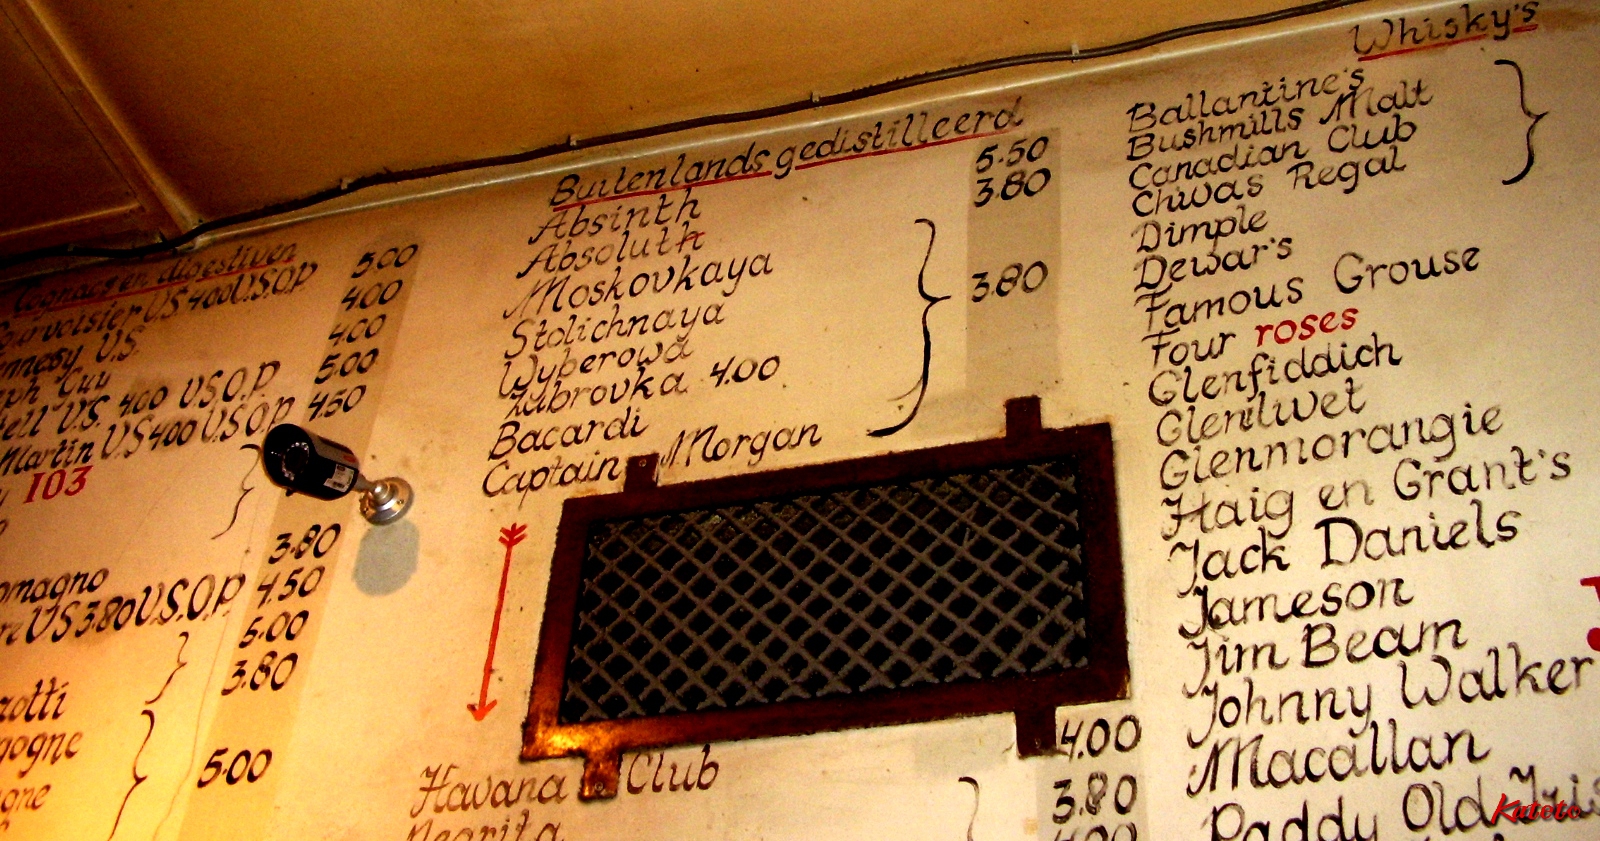 Cognac en digestiven
Courvoisier V.S 400 V.S.O.P 5.00
V.S. 4.00
Guy 4.00
V.S. 4.00 V.S.O.P 5.00
Martin V.S 400 V.S.O.P 4.50
103
3.80
V.S 3.80 V.S.O.P 4.50
5.00
3.80
5.00
Buitenlands gedistilleerd
Absinth 5.50
Absoluth 3.80
Moskovkaya
Stolichnaya 3.80
Wyberowa
Zubrovka 4.00
Bacardi
Captain Morgan
4.00
Havana Club 3.80
Negrita 4.00
Whisky's
Ballantine's
Bushmills Malt
Canadian Club
Chivas Regal
Dimple
Dewar's
Famous Grouse
Four roses
Glenfiddich
Glenlivet
Glenmorangie
Haig en Grant's
Jack Daniels
Jameson
Jim Beam
Johnny Walker
Macallan
Paddy Old Iris
Kateto